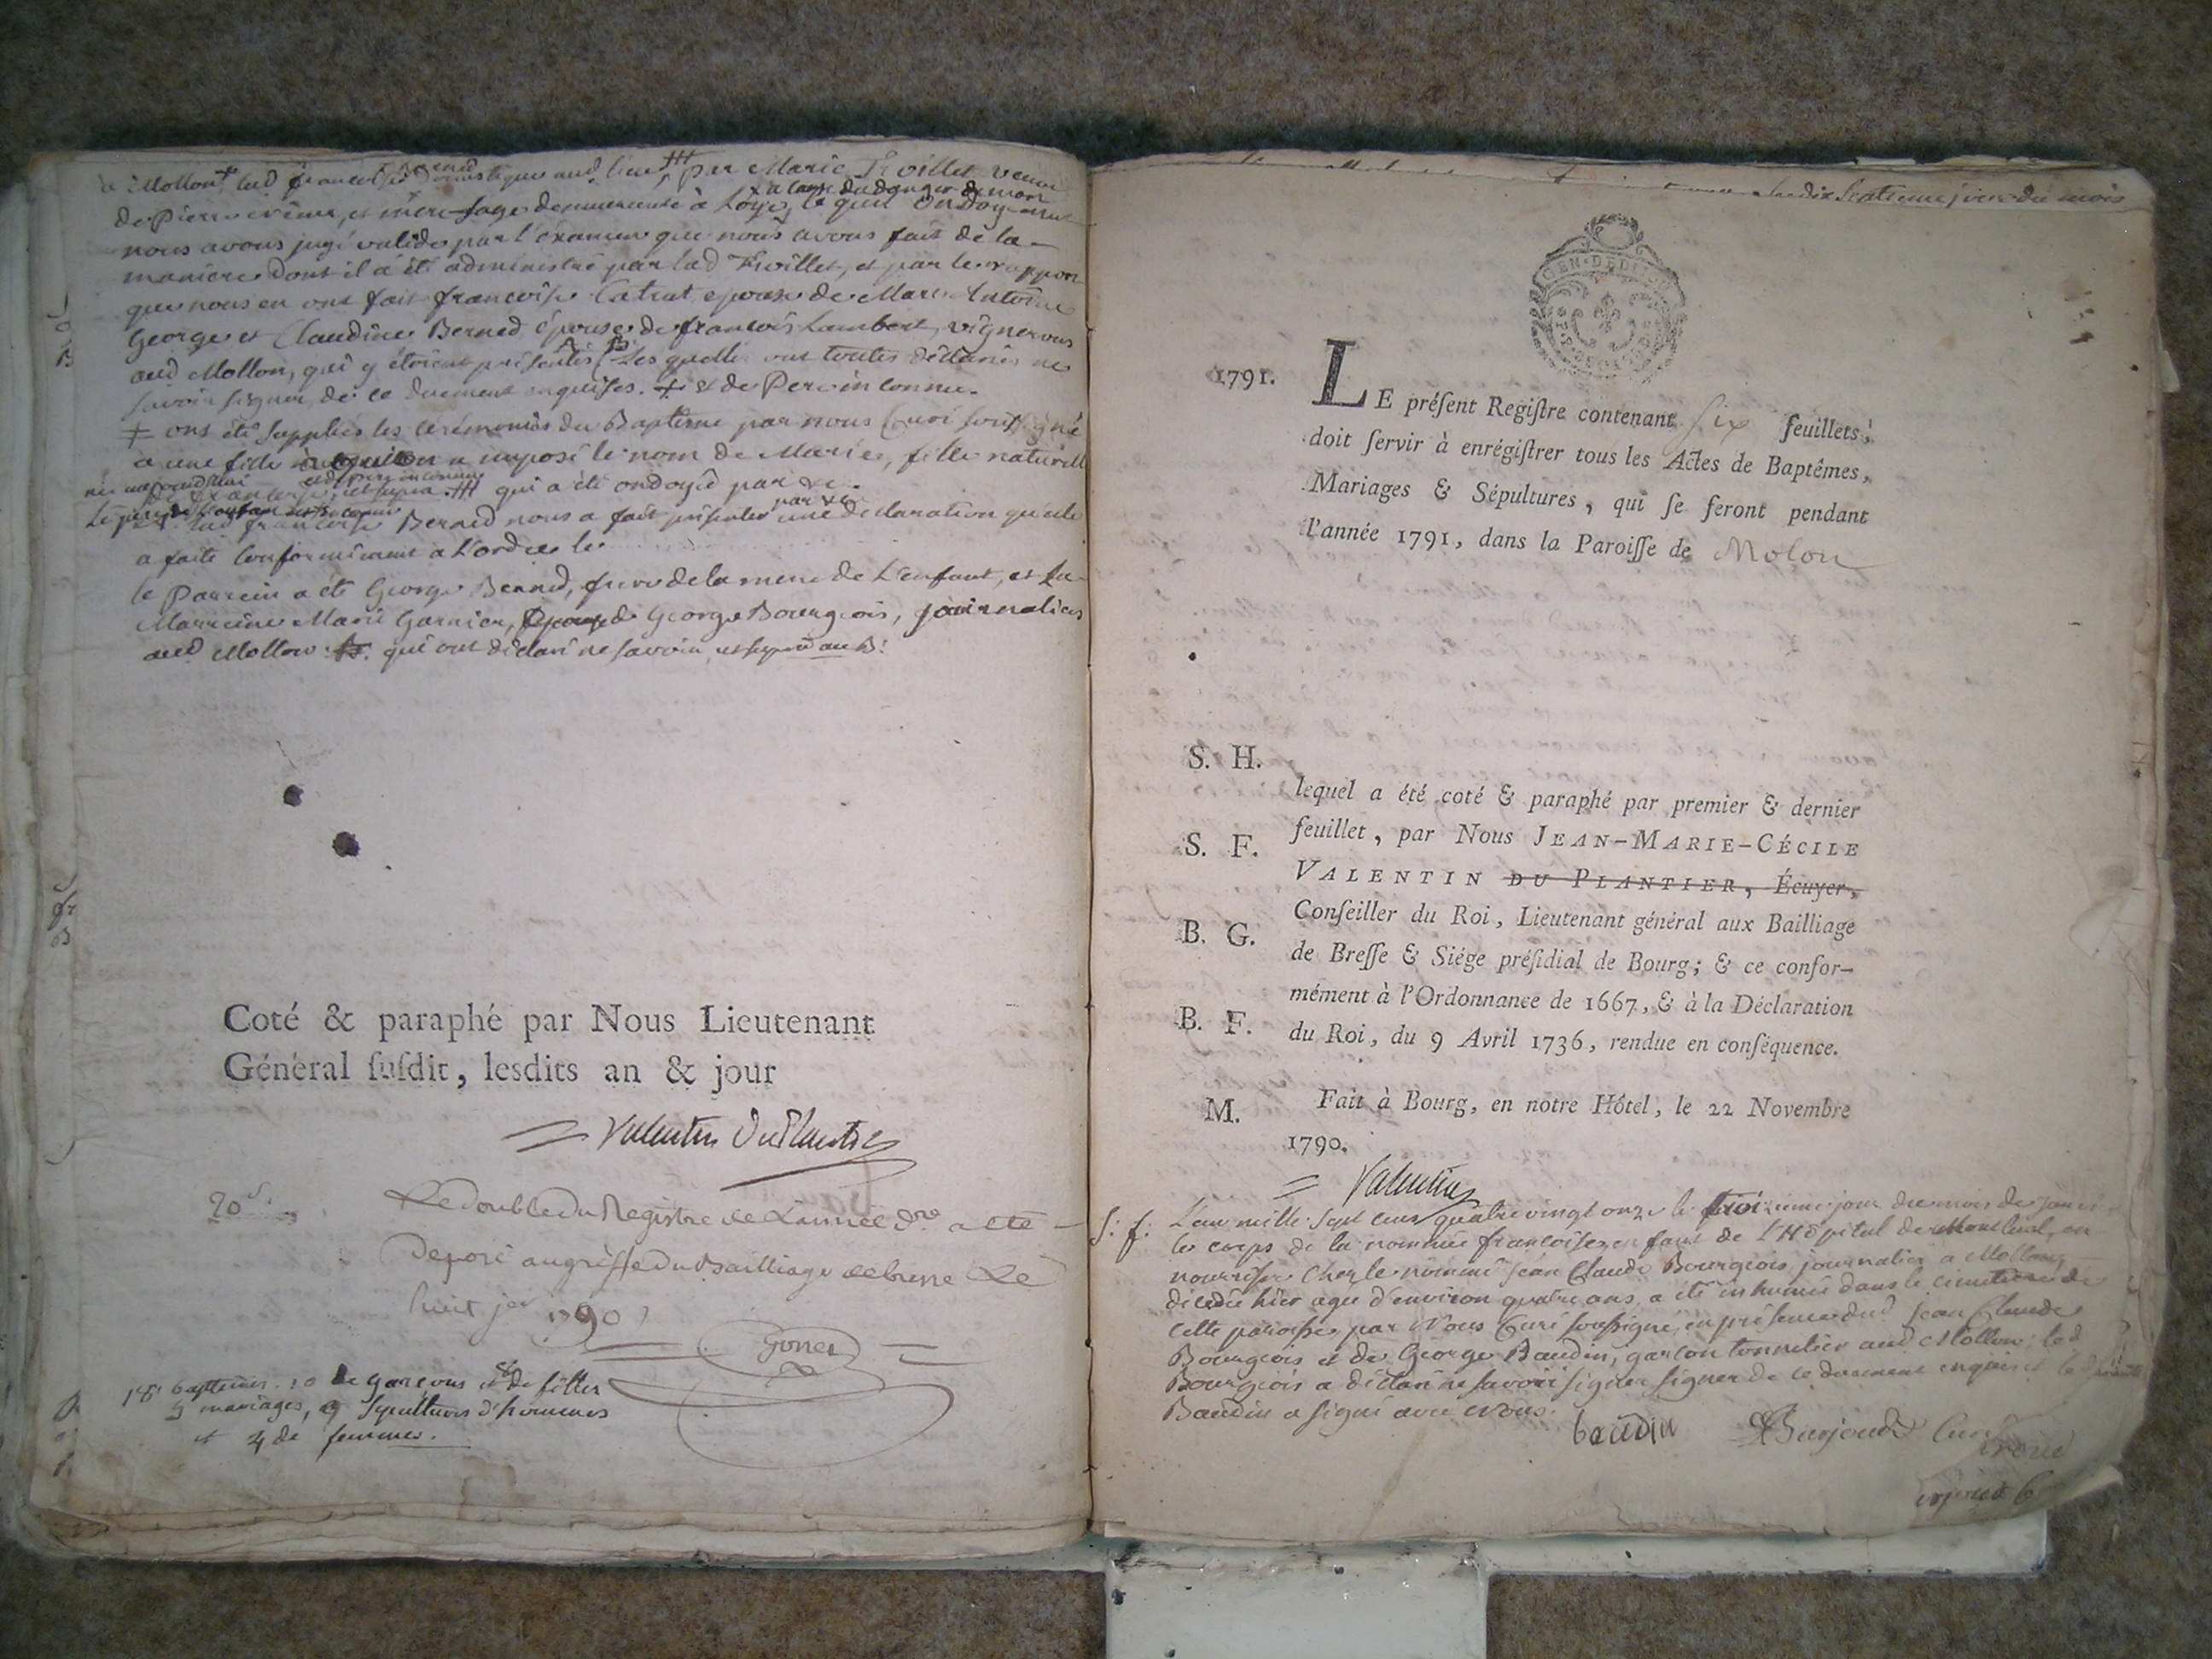 à Mollon lad françoise Bernd domestique aud. lieu par Marie Froillet veuve
à cause du danger de mort
de Pierre et mere sage demeurante à Loye, le quel Ondoyement
nous avons jugé valide par l'examen que nous avons fait de la
maniere dont il a été administré par lad Froillet, et par le rapport
que nous en ont fait françoise Catrat epouse de Marc Antoine
George et Claudine Bernard épouse de françois Lambert, vignerons
aud Mollon, qui y étoient présentes Les quelles ont toutes déclaré ne
savoir signer, de ce duement enquises. + & de Pere inconnu.
‡ ont été supplées les cérémonies du Baptême par nous Curé soussigné
a une fille a imposé le nom de Marie, fille naturelle
née aujourd'hui et de pere inconnu
de françoise, ut supra ‡‡‡ qui a été ondoyée par &c.
lad françoise Bernard nous a fait présenter par &c une déclaration qu'elle
a faite conformément a L'ordre le
le Parrein a été George Bernard, frere de la mere de L'enfant, et La
Marreine Marie Garnier, Epouse de George Bourgeois, journaliers
aud Mollon. qui ont déclaré ne savoir ut supra au B.
Coté & paraphé par Nous Lieutenant
Général ſuſdit, lesdits an & jour
Valentin DuPlantier
20 s.
Le double du Registre de L'année dre a été
Deposé au greffe du Bailliage de bresse Le
huit jer 1790
Gonet
18 baptêmes. 10 de garçons et 8 de filles
9 mariages, 9 sepultures d'hommes
et 4 de femmes.
le dix septieme jour du mois
GEN. DE DIJON
1791.
LE préſent Regiſtre contenant Six feuillets,
doit ſervir à enrégiſtrer tous les Actes de Baptêmes,
Mariages & Sépultures, qui ſe feront pendant
l'année 1791, dans la Paroiſſe de Molon
S. H.
lequel a été coté & paraphé par premier & dernier
S. F.
feuillet, par Nous JEAN-MARIE-CÉCILE
VALENTIN DU PLANTIER, Écuyer,
B. G.
Conſeiller du Roi, Lieutenant général aux Bailliage
de Breſſe & Siége préſidial de Bourg; & ce confor-
mément à l'Ordonnance de 1667, & à la Déclaration
B. F.
du Roi, du 9 Avril 1736, rendue en conſéquence.
M.
Fait à Bourg, en notre Hôtel, le 22 Novembre
1790.
Valentin
S: f: L'an mille sept cens quatre vingt onze le troizieme jour du mois de janvier
le corps de la nommée françoise enfant de L'Hôpital de Montluel, en
nourrisse chez le nommé jean Claude Bourgeois journalier a Mollon,
décédée hier agée d'environ quatre ans, a été inhumée dans le cimetiere de
cette paroisse par Nous Curé soussigné, en présence dud jean Claude
Bourgeois et de George Baudin, garçon tonnelier aud Mollon; led
Bourgeois a déclaré ne savoir signer signer de ce duement enquis et le
Baudin a signé avec Nous.
baudin Burjoud Curé